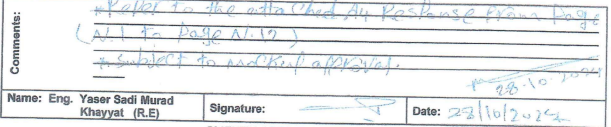 * Refer to the attached A4 Response from page
(N.1 to Page N.12)
Comments:
* Subject to mockup approval.
28.10.2024
Name: Eng. Yaser Sadi Murad Khayyat (R.E)
Signature:
Date: 28/10/2024